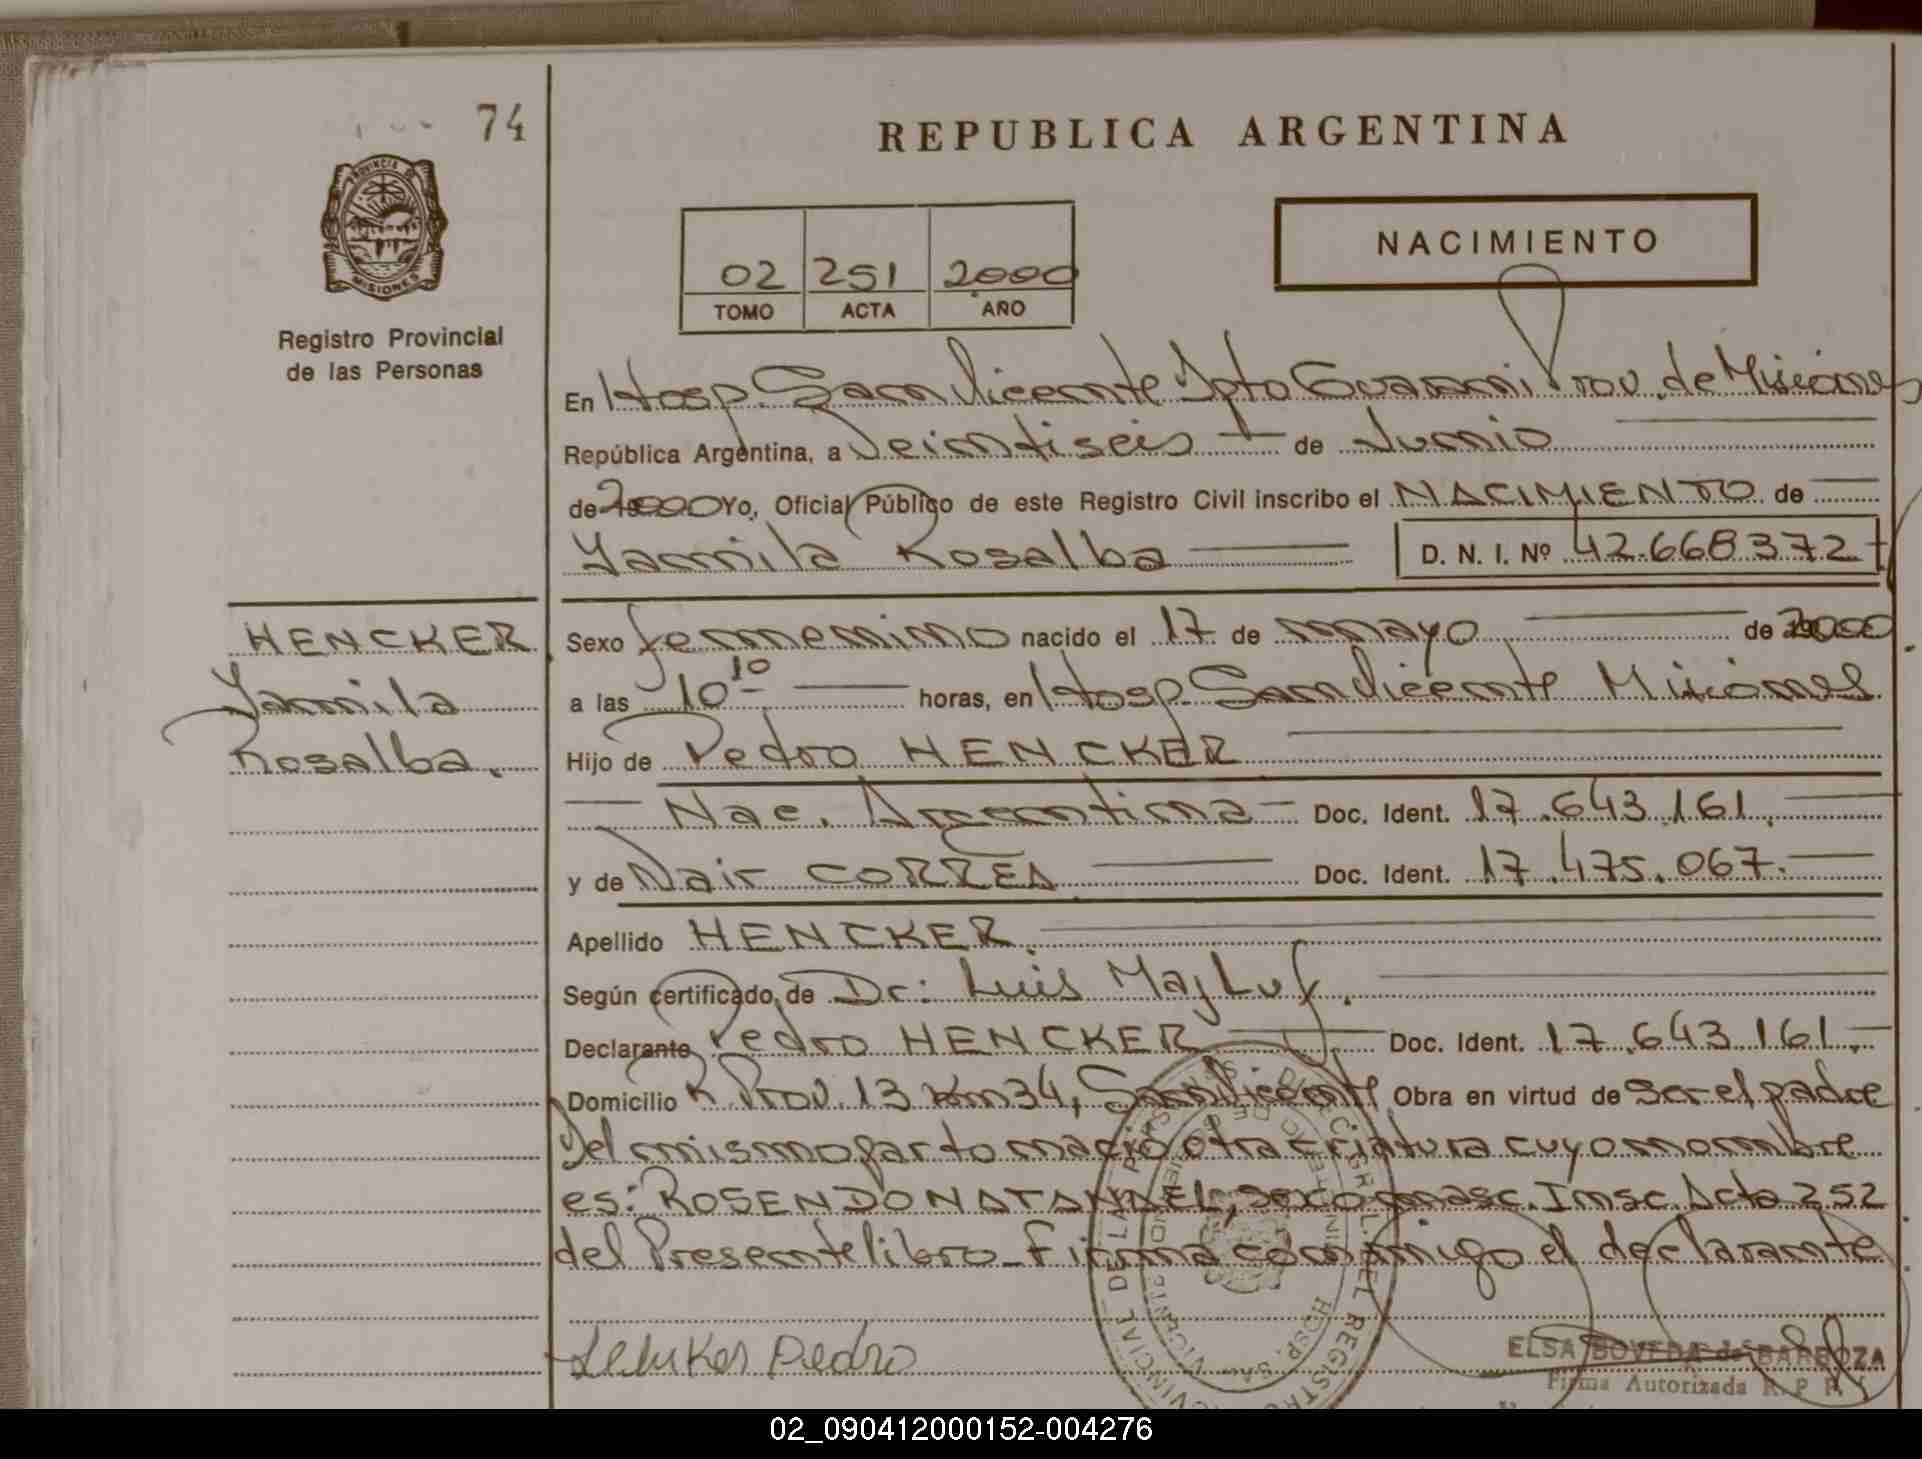 74
REPUBLICA ARGENTINA
PROVINCIA DE
MISIONES
Registro Provincial
de las Personas
02 251 2000
TOMO ACTA AÑO
NACIMIENTO
En Hosp. San Vicente Dpto Guarani Prov. de Misiones
República Argentina, a Veintiseis de Junio
de 2000 Yo, Oficial Público de este Registro Civil inscribo el NACIMIENTO de
Yamila Rosalba D. N. I. Nº 42.668372
HENCKER
Yamila
Rosalba.
Sexo femenino nacido el 17 de mayo de 2000
a las 10 10 horas, en Hosp. San Vicente Misiones
Hijo de Pedro HENCKER
Nac. Argentina Doc. Ident. 17.643.161.
y de Nair CORREA Doc. Ident. 17.475.067.
Apellido HENCKER
Según certificado de Dr: Luis MajLuf.
Declarante Pedro HENCKER Doc. Ident. 17.643.161.
Domicilio R. Prov. 13 Km 34, San Vicente Obra en virtud de ser el padre
Del mismo parto nacio otra criatura cuyo nombre
es: ROSENDO NATANAEL, sexo masc. Insc. Acta 252
del Presente libro - Firma conmigo el declarante
Pedro
ELSA BOVEDA de BARBOZA
Firma Autorizada R. P. P.
02_090412000152-004276